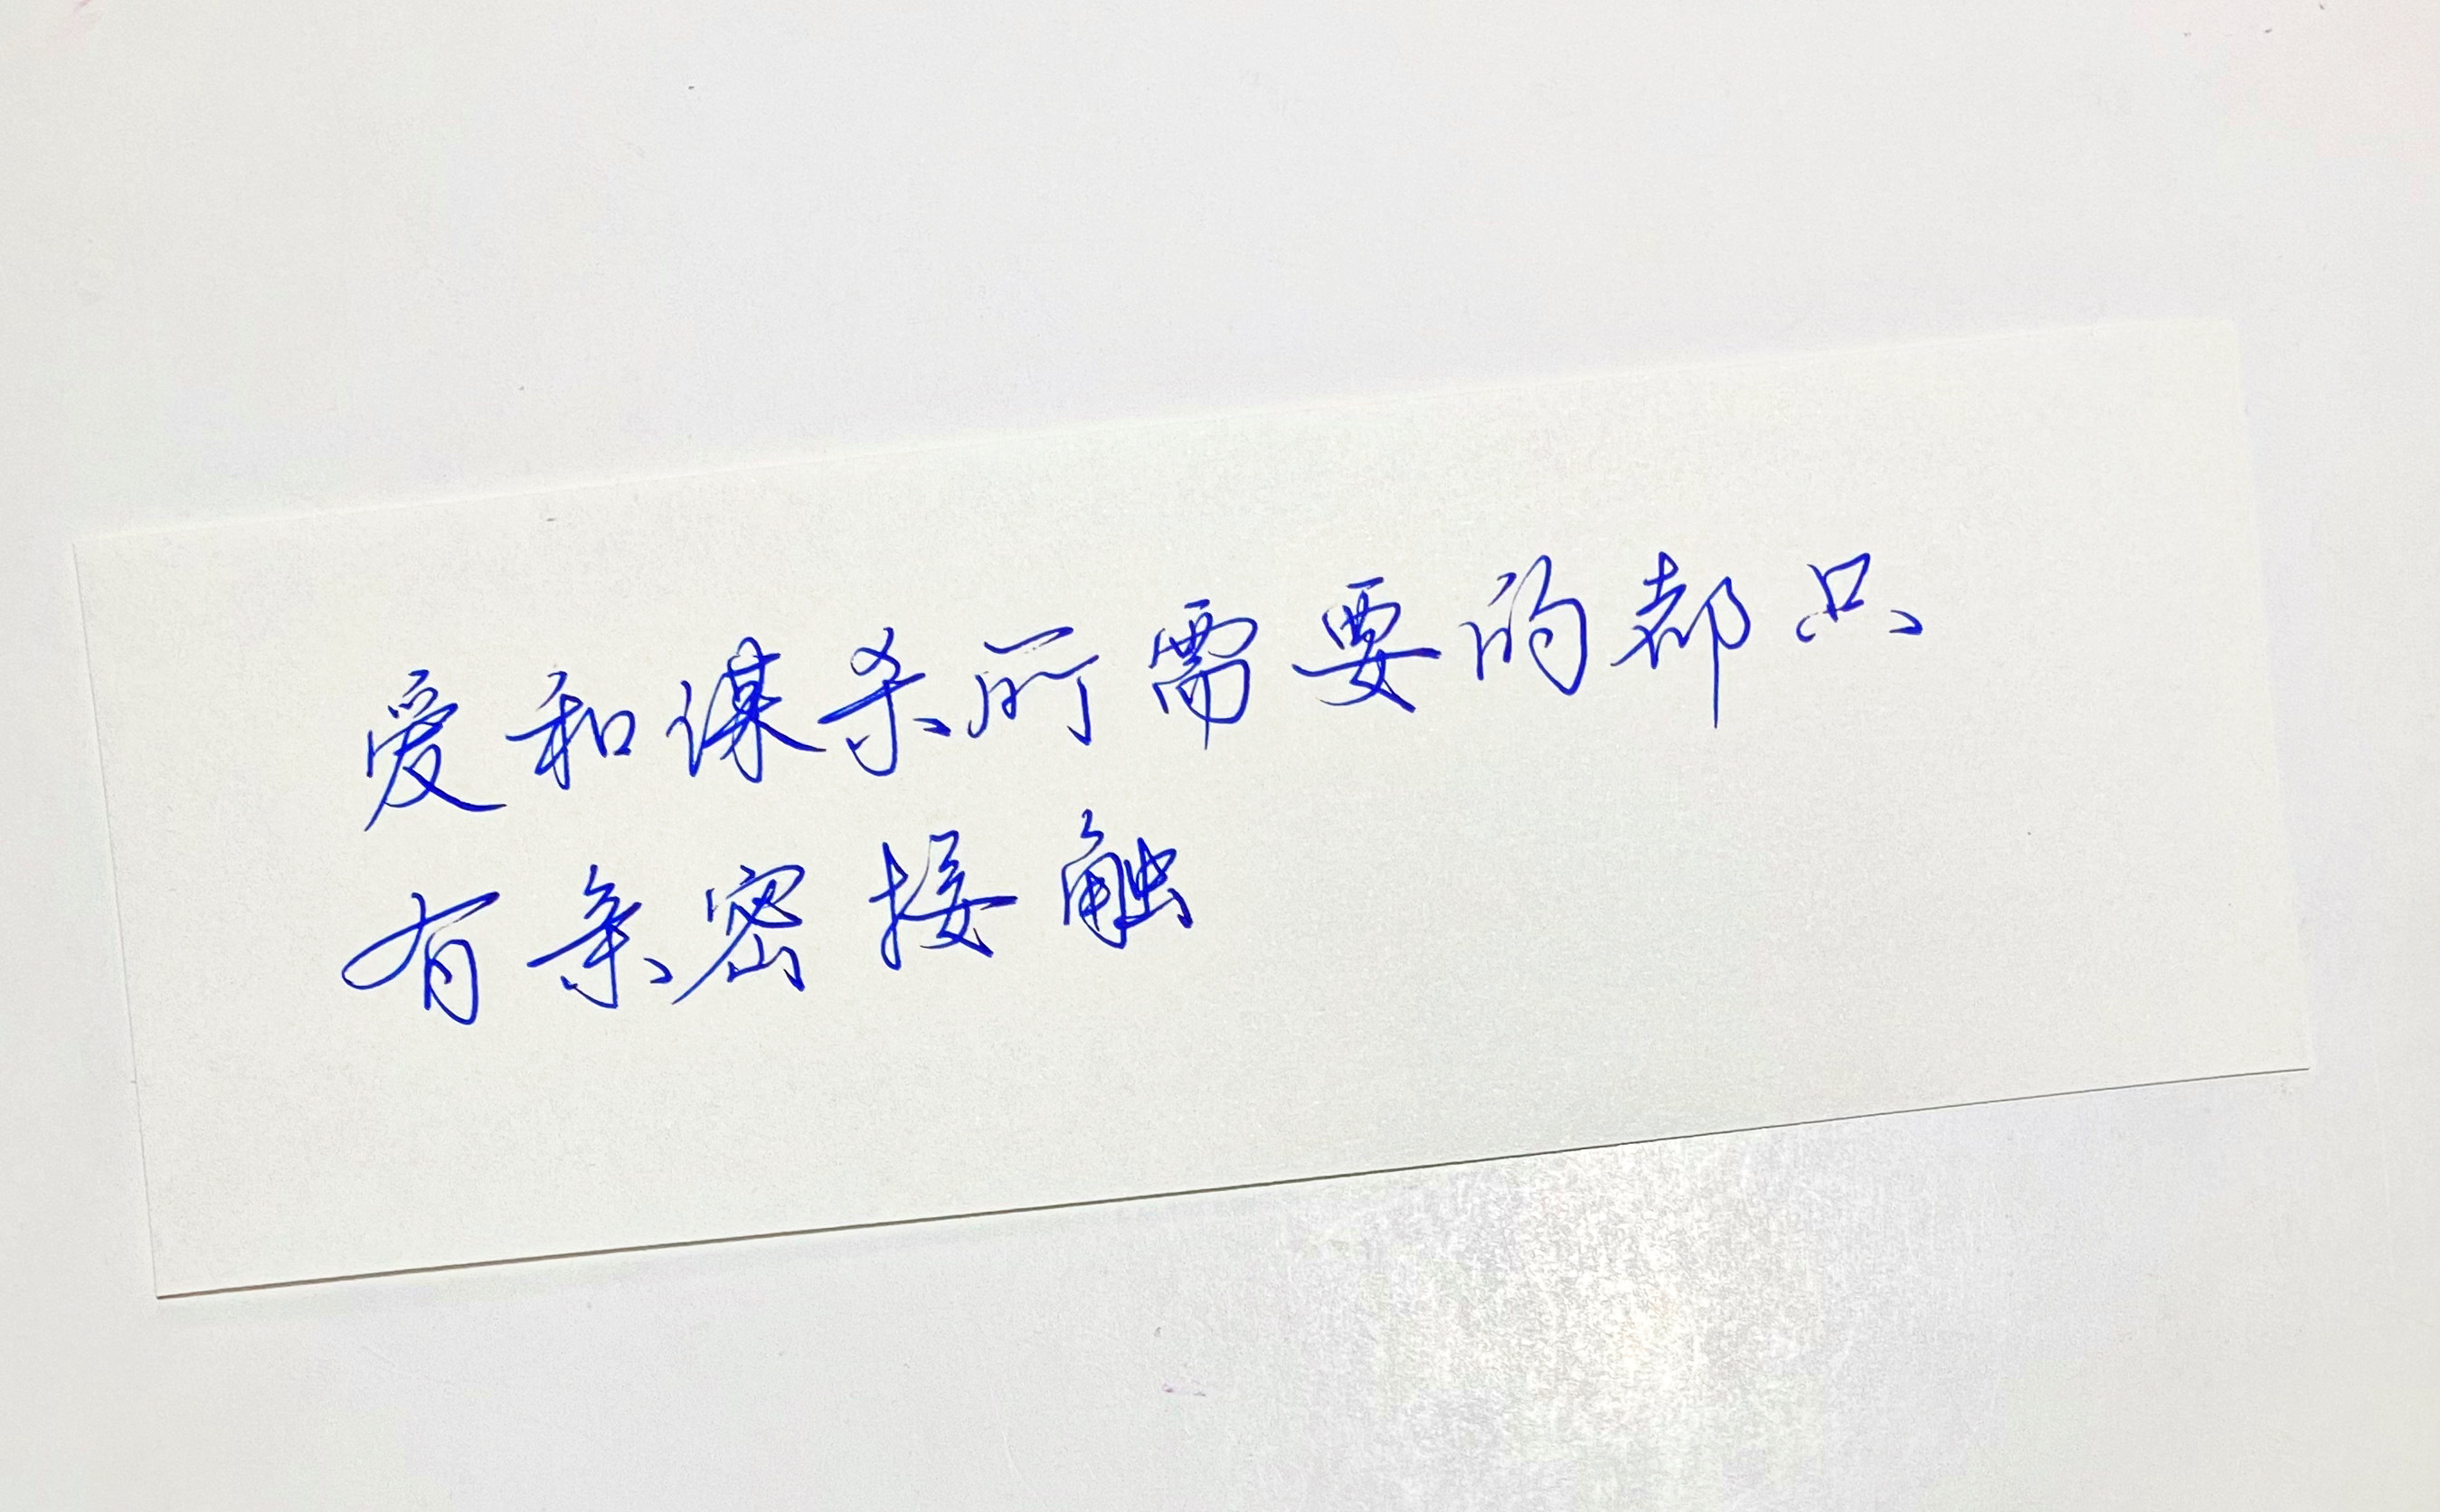 爱和谋杀所需要的都只
有亲密接触